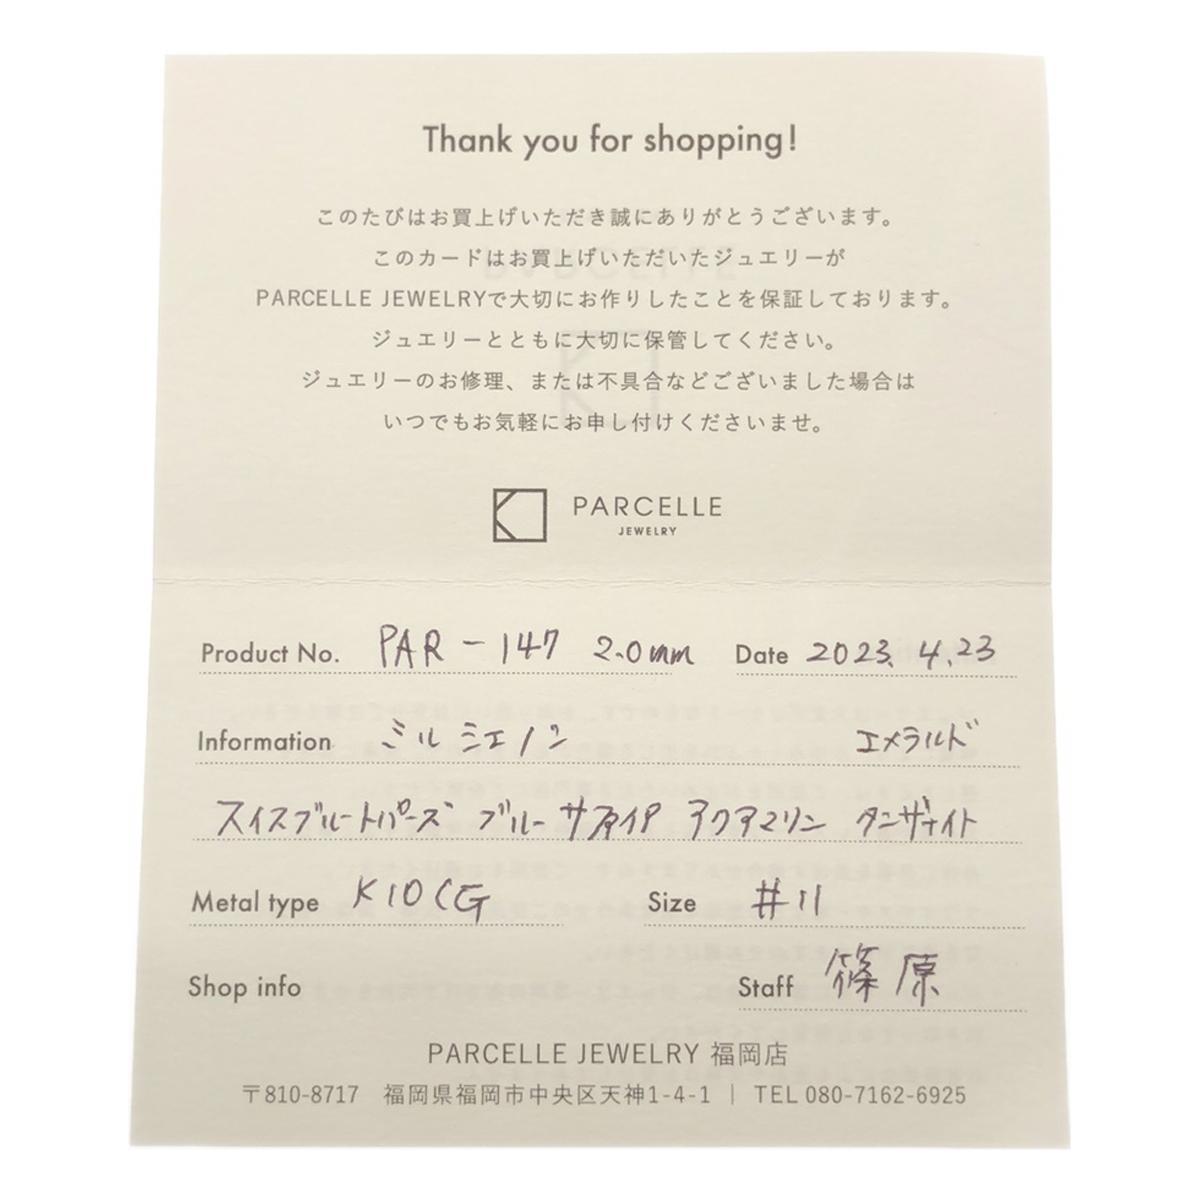 Thank you for shopping!
このたびはお買上げいただき誠にありがとうございます。
このカードはお買上げいただいたジュエリーが
PARCELLE JEWELRYで大切にお作りしたことを保証しております。
ジュエリーとともに大切に保管してください。
ジュエリーのお修理、または不具合などございました場合は
いつでもお気軽にお申し付けくださいませ。
PARCELLE
JEWELRY
Product No. PAR-147 2.0mm Date 2023.4.23
Information ミルシエノン エメラルド
スイスブルートパーズ ブルーサファイア アクアマリン タンザナイト
Metal type K10CG Size #11
Shop info Staff 篠原
PARCELLE JEWELRY 福岡店
〒810-8717 福岡県福岡市中央区天神1-4-1 | TEL 080-7162-6925